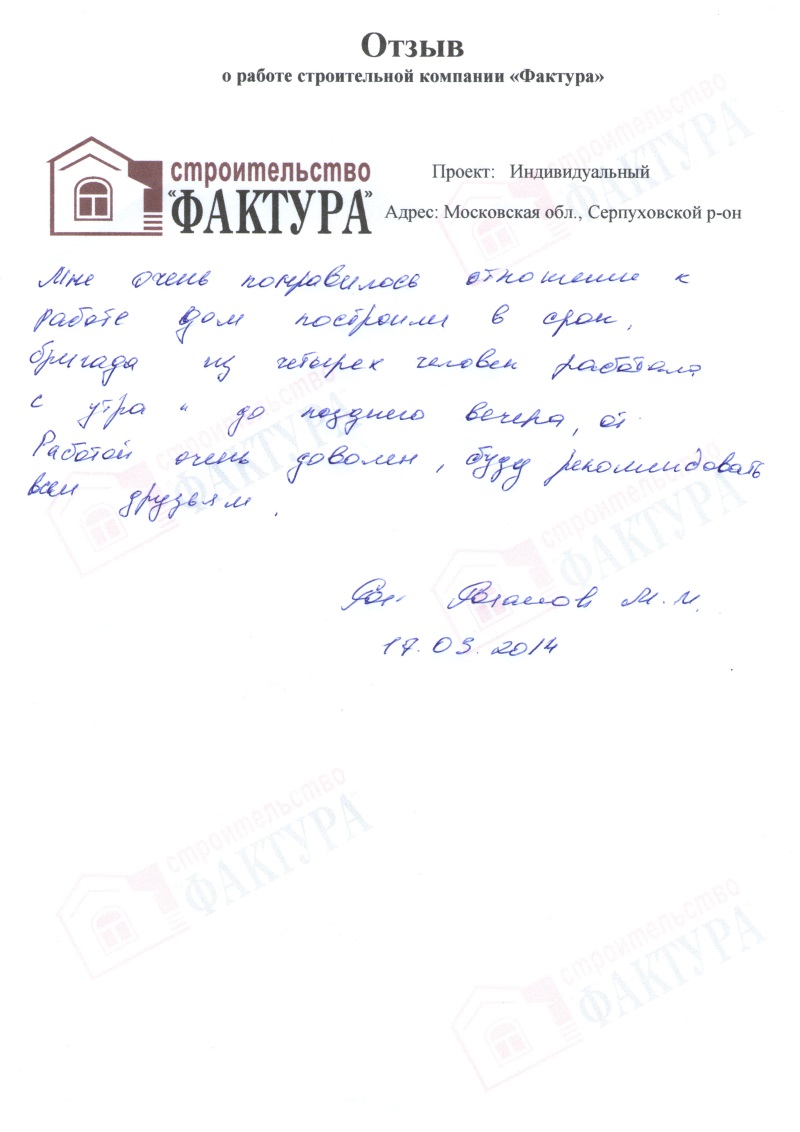 Отзыв
о работе строительной компании «Фактура»
строительство
"ФАКТУРА"
Проект: Индивидуальный
Адрес: Московская обл., Серпуховской р-он
Мне очень понравилось отношение к
работе дом построили в срок,
бригада из четырех человек работала
с утра и до позднего вечера, от
Работой очень доволен, буду рекомендовать
всем друзьям.
М.И.
17.03.2014
строительство
ФАКТУРА
строительство
ФАКТУРА
строительство
ФАКТУРА
строительство
ФАКТУРА
строительство
ФАКТУРА